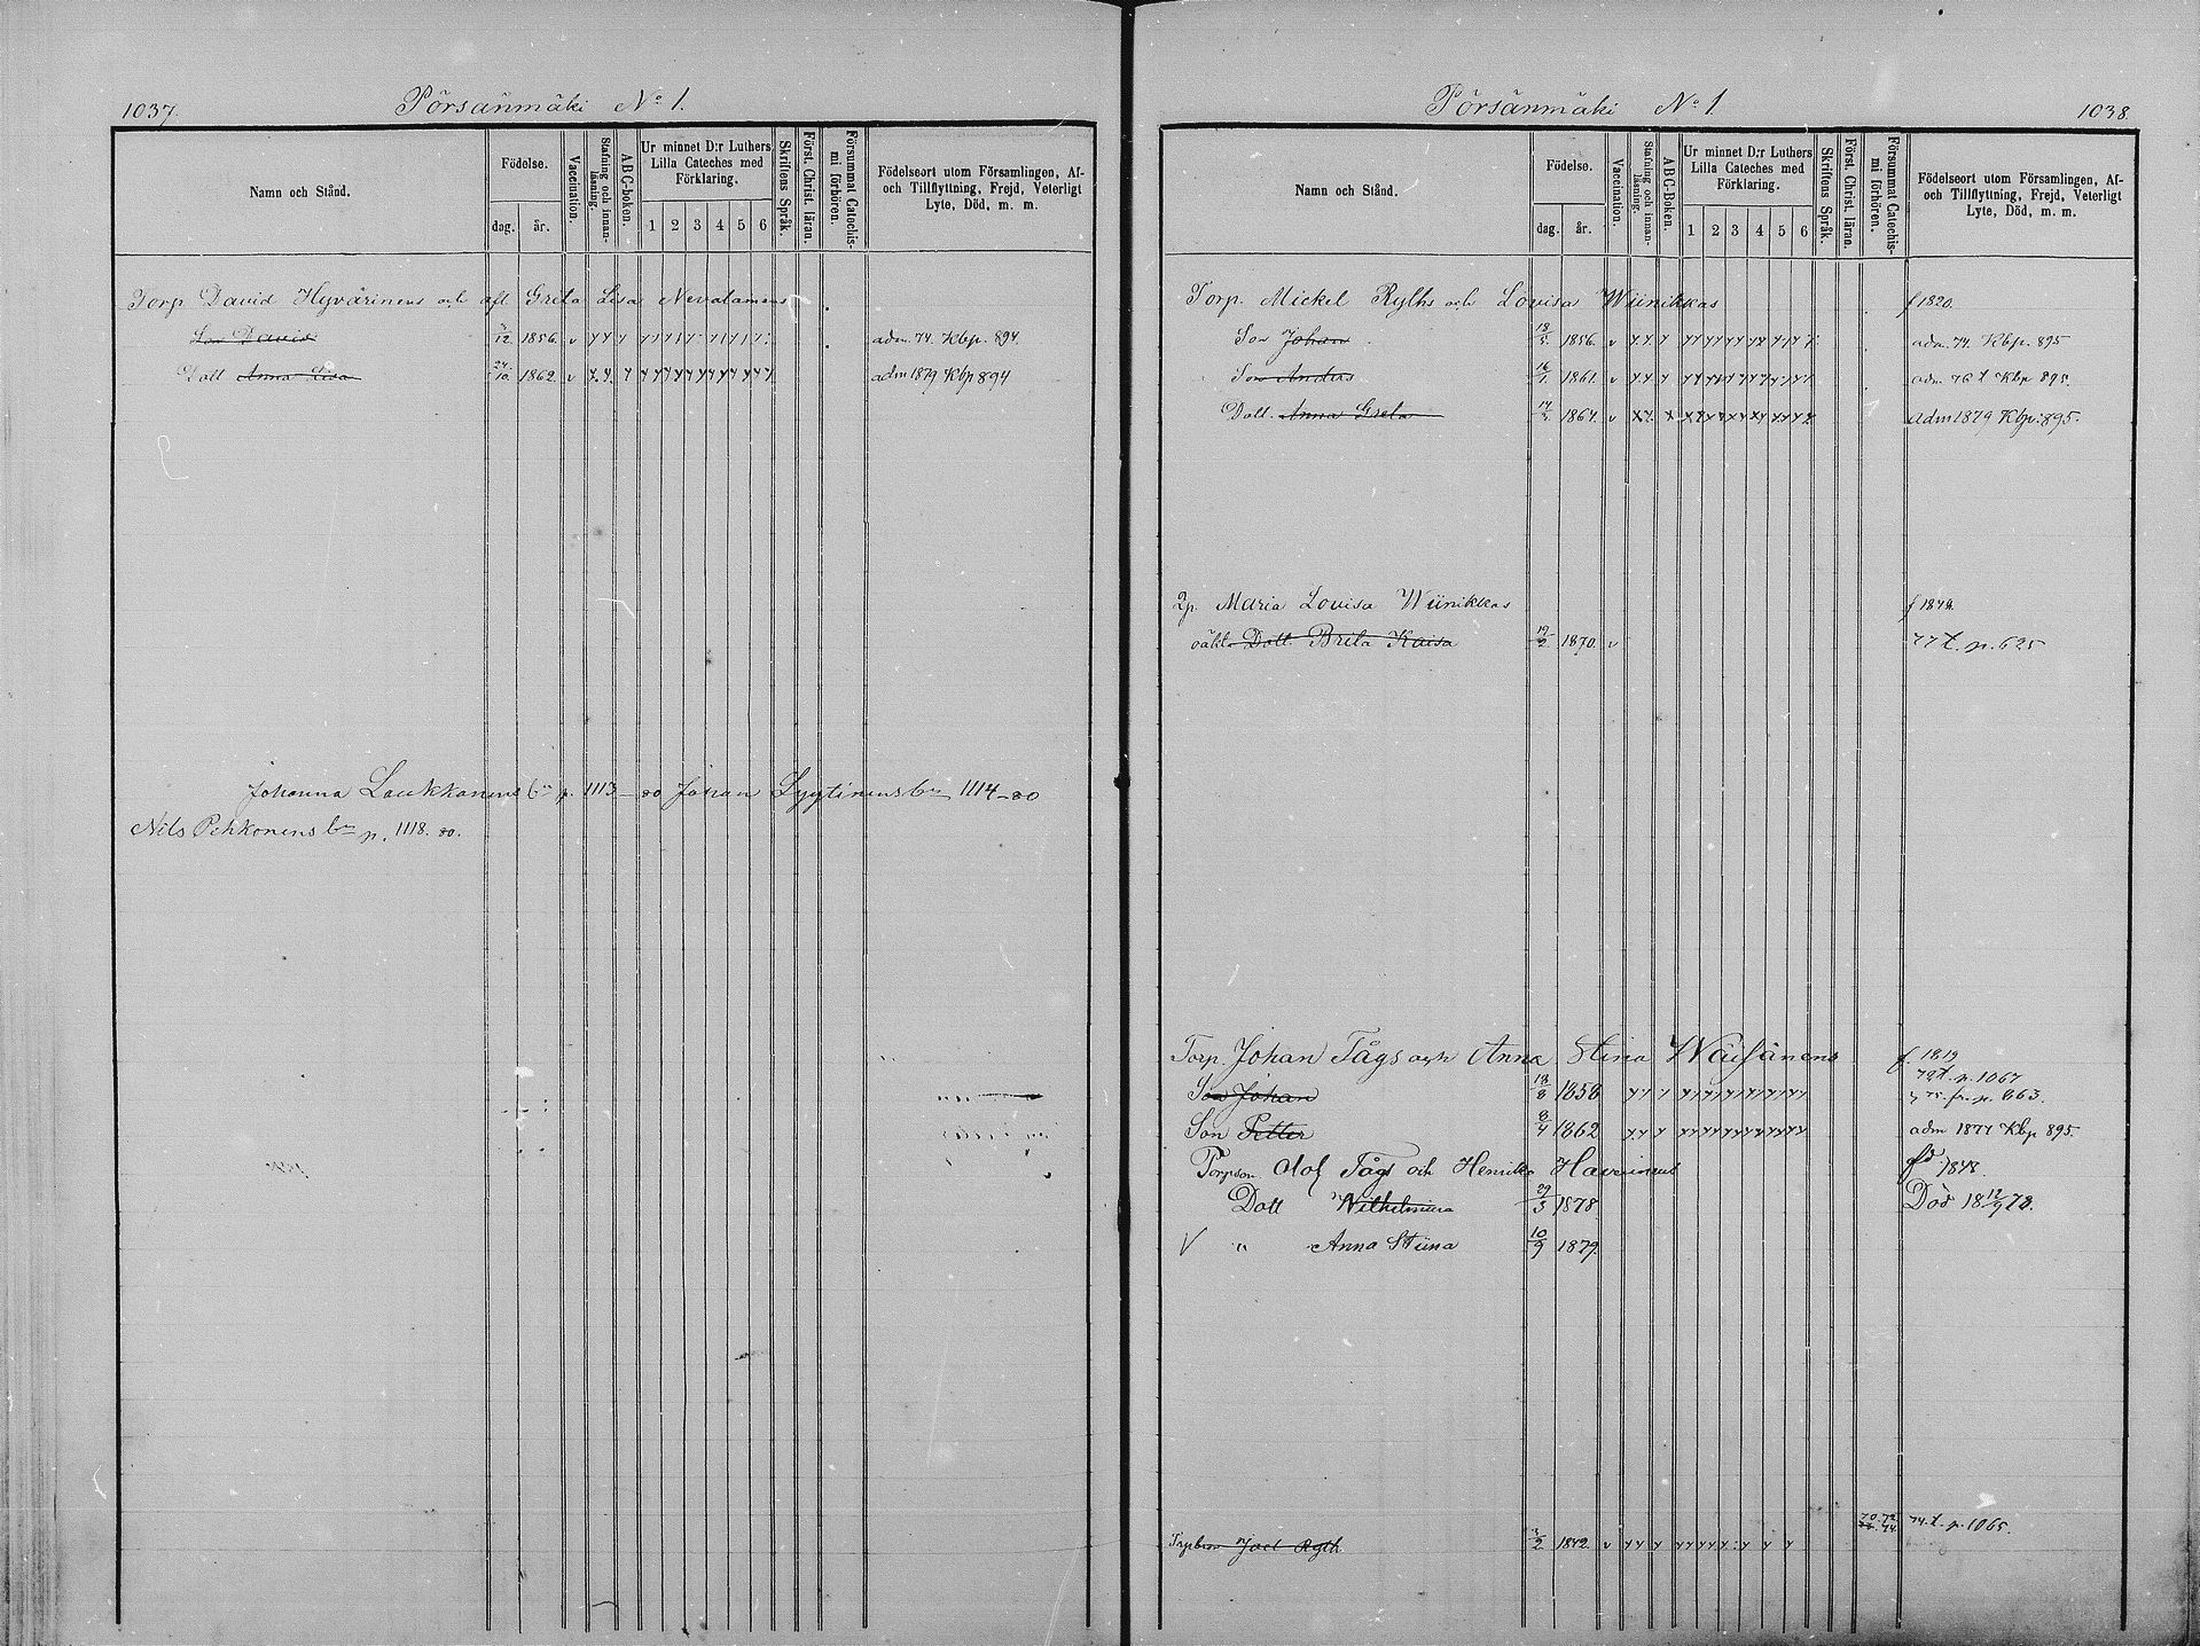 1037.
Pörsänmäki No 1.
Namn och Stånd.
Födelse.
dag.
år.
Vaccination.
Stafning och innanläsning.
ABC-boken.
Ur minnet D:r Luthers Lilla Cateches med Förklaring.
1 2 3 4 5 6
Skriftens Språk.
Först. Christ. läran.
Försummat Catechismi förhören.
Födelseort utom Församlingen, Af- och Tillflyttning, Frejd, Veterligt Lyte, Död, m. m.
Torp David Hyvärinens och afl Greta Lisa Nevalainens
Son David 3/12. 1856. v adm. 74. Kbp. 894.
Dott Anna Lisa 24/10. 1862. v adm 1879 Kbp 894
Johanna Laukkanens bn p. 1113 - 80 Johan Lyytinens bn 1114 - 80
Nils Pehkonens bn p. 1118. 80.
Pörsänmäki No 1.
1038.
Namn och Stånd.
Födelse.
dag.
år.
Vaccination.
Stafning och innanläsning.
ABC-Boken.
Ur minnet D:r Luthers Lilla Cateches med Förklaring.
1 2 3 4 5 6
Skriftens Språk.
Först. Christ. läran.
Försummat Catechismi förhören.
Födelseort utom Församlingen, Af- och Tillflyttning, Frejd, Veterligt Lyte, Död, m. m.
Torp. Mickel Ryths och Lovisa Wiinikkas f 1820.
Son Johan 18/5. 1856. v adm. 74. Kbp. 895
Son Anders 16/1. 1861. v adm. 76 Kbp 895.
Dott. Anna Greta 1864. v adm 1879 Kbp: 895.
Maria Lovisa Wiinikkas
oäkta Dott Brita Kaisa 19/2 1870. v 77 t. p. 625
Torp. Johan Tågs och Anna Stina Wäisänens f. 1819
79 t. p. 1067
Son Johan 18/8 1858 75. fr. p. 863.
Son Petter 8/4 1862 adm 1877 Kbp 895.
Torpson Olof Tågs och Henrika 1848.
Dott Wilhelmina 29/3 1878. Död 18 12/9 78.
V " Anna Stiina 10/9 1879.
70. 72.
74. t. p. 1065.
Joel Ryth 3/2 1842. v